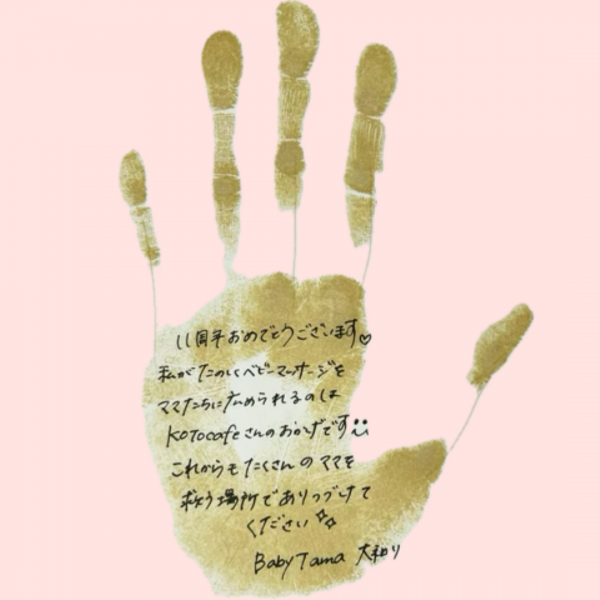 11周年おめでとうございます♡
私がたのしくベビーマッサージを
ママたちに広められるのは
kotocafeさんのおかげです
これからもたくさんのママを
救う場所でありつづけて
ください
Baby Tama